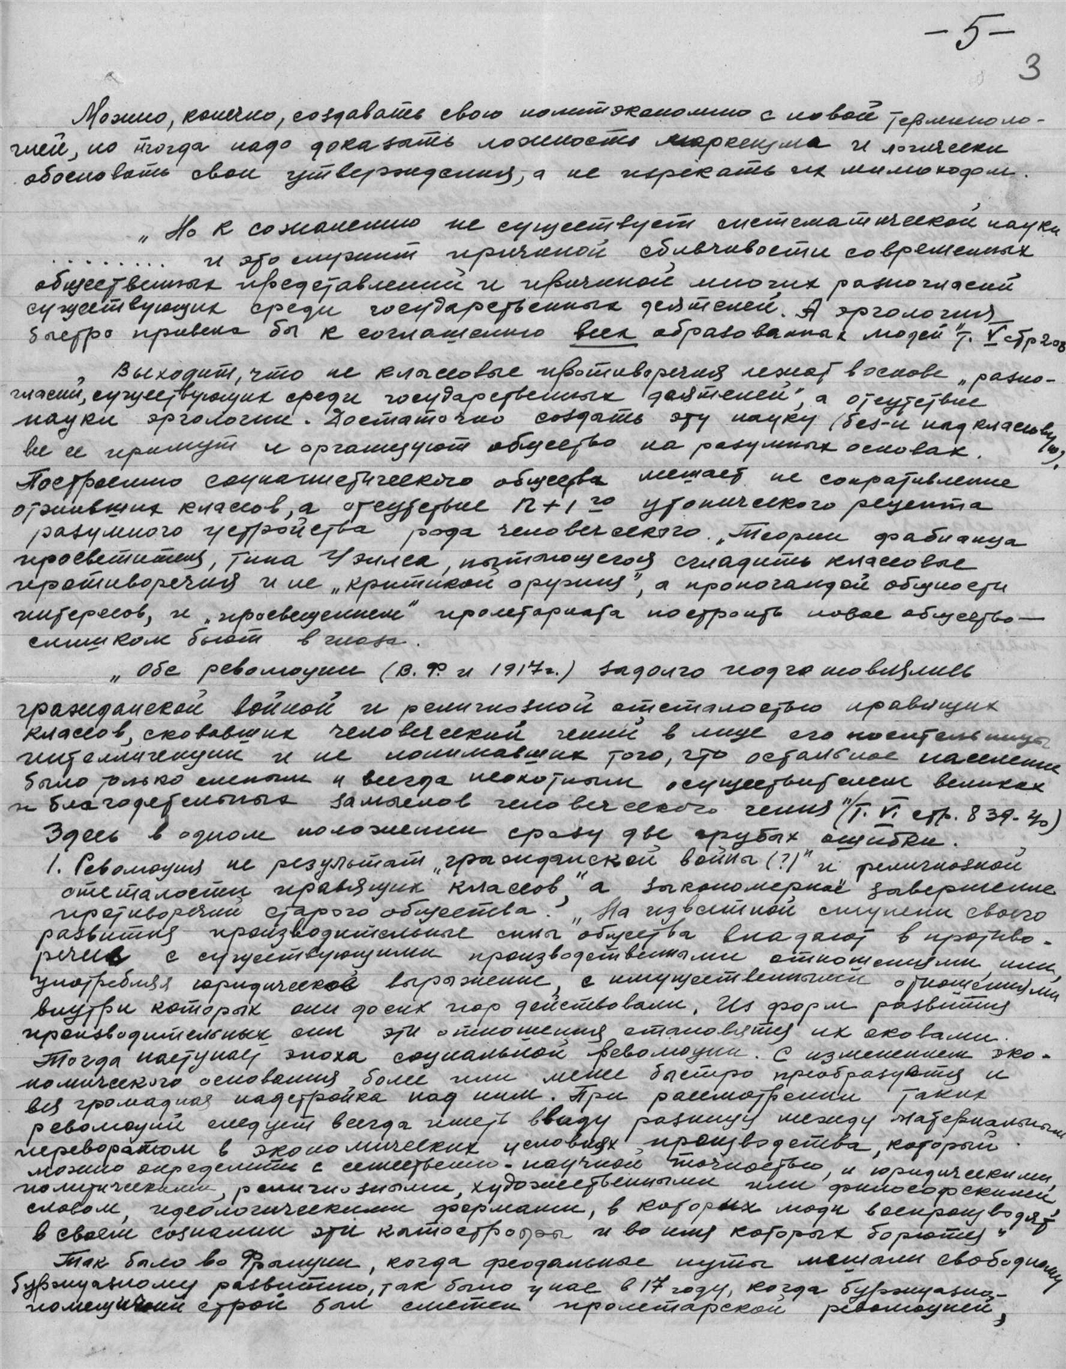 – 5 –
3
Можно, конечно, создавать свою политэкономию с новой терминоло-
гией, но тогда надо доказать ложность марксизма и логически
обосновать свои утверждения, а не изрекать их мимоходом.
„Но к сожалению не существует систематической науки
......... и это служит причиной сбивчивости современных
общественных представлений и причиной многих разногласий
существующих среди государственных деятелей. А эргология
быстро привела бы к соглашению всех образованных людей" т. V стр 208
Выходит, что не классовые противоречия лежат в основе „разно-
гласий, существующих среди государственных деятелей", а отсутствие
науки эргологии. Достаточно создать эту науку (без- и надклассовую),
все ее примут и организуют общество на разумных основах.
Построению социалистического общества мешает не сопротивление
отживших классов, а отсутствие n+1го утопического рецепта
разумного устройства рода человеческого. „Теории фабианца
просветителя, типа Уэллса, пытающегося сгладить классовые
противоречия и не „критикой оружия", а пропогандой общности
интересов, и „просвещением" пролетариата построить новое общество —
слишком бьют в глаза.
„Обе революции (В. Ф. и 1917 г.) задолго подготовлялись
гражданской войной и религиозной отсталостью правящих
классов, сковавших человеческий гений в лице его носительницы
интеллигенции и не понимавших того, что остальное население
было только слепым и всегда неохотным осуществителем великих
и благодетельных замыслов человеческого гения" (т. VI стр. 839-40)
Здесь в одном положении сразу две грубых ошибки.
1. Революция не результат „гражданской войны (?)" и религиозной
отсталости правящих классов", а закономерное завершение
противоречий старого общества. „На известной ступени своего
развития производительные силы общества впадают в противо-
речие с существующими производственными отношениями или,
употребляя юридическое выражение, с имущественными отношениями
внутри которых они до сих пор действовали. Из форм развития
производительных сил эти отношения становятся их оковами.
Тогда наступает эпоха социальной революции. С изменением эко-
номического основания более или менее быстро преобразуется и
вся громадная надстройка над ним. При рассмотрении таких
революций следует всегда иметь ввиду разницу между материальным
переворотом в экономических условиях производства, который
можно определить с естественно-научной точностью, и юридическими,
политическими, религиозными, художественными или философскими
словом, идеологическими формами, в которых люди воспроизводят
в своем сознании эти катострофы и во имя которых борются"
Так было во Франции, когда феодальные путы мешали свободному
буржуазному развитию, так было у нас в 17 году, когда буржуазно-
помещичий строй был сметен пролетарской революцией,